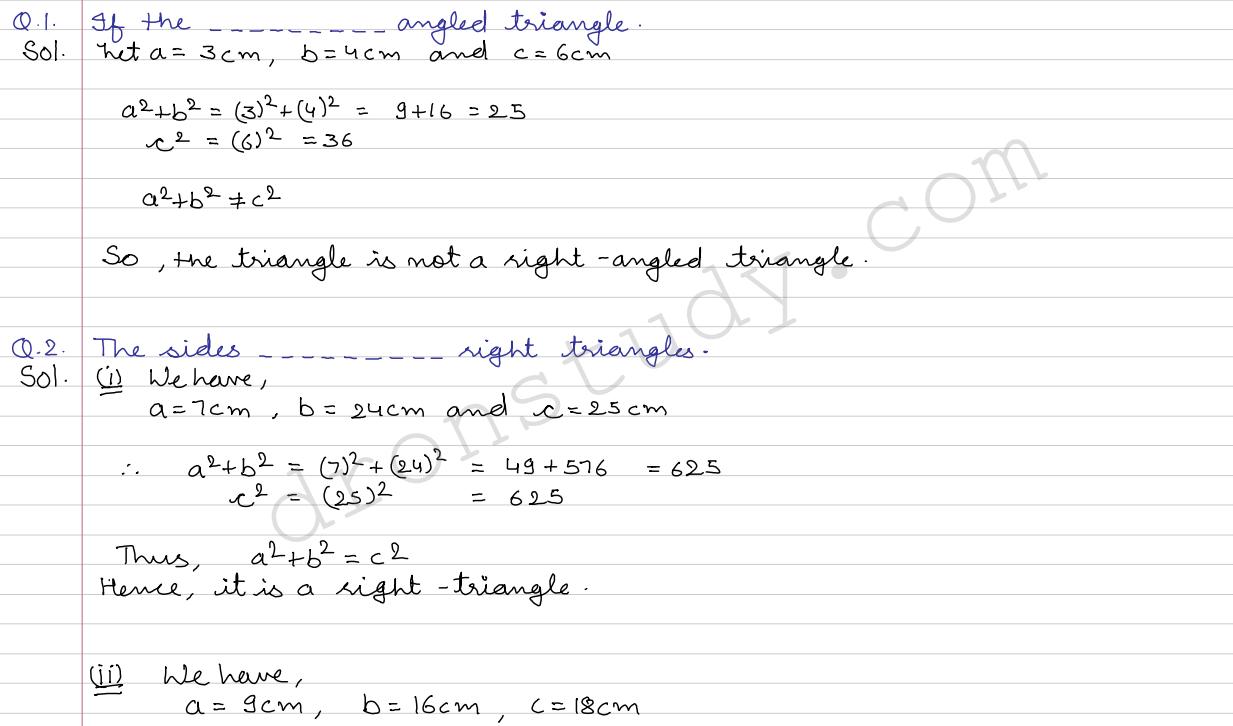 Q.1. If the _ _ _ _ _ _ _ _ _ angled triangle.
Sol. Let a = 3cm, b = 4cm and c = 6cm
a²+b² = (3)²+(4)² = 9+16 = 25
c² = (6)² = 36
a²+b² ≠ c²
So, the triangle is not a right-angled triangle.
Q.2. The sides _ _ _ _ _ _ _ _ _ right triangles.
Sol. (i) We have,
a = 7cm, b = 24cm and c = 25cm
∴ a²+b² = (7)²+(24)² = 49+576 = 625
c² = (25)² = 625
Thus, a²+b² = c²
Hence, it is a right-triangle.
(ii) We have,
a = 9cm, b = 16cm, c = 18cm
dronstudy.com